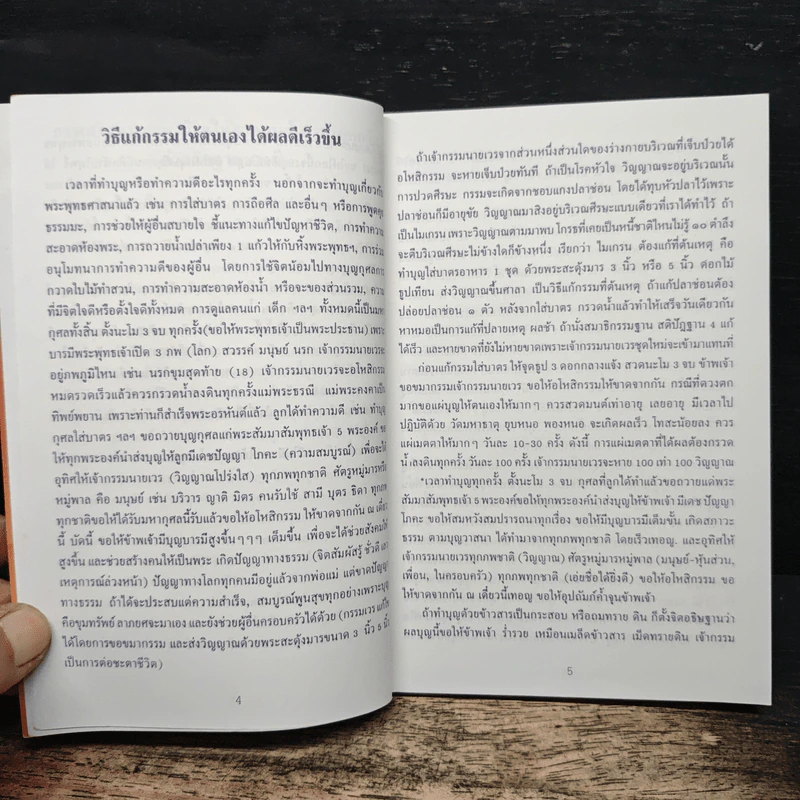 วิธีแก้กรรมให้ตนเองได้ผลดีเร็วขึ้น
เวลาที่ทำบุญหรือทำความดีอะไรทุกครั้ง นอกจากจะทำบุญเกี่ยวกับ
พระพุทธศาสนาแล้ว เช่น การใส่บาตร การถือศีล และอื่นๆ หรือการพูดคุย
ธรรมมะ, การช่วยให้ผู้อื่นสบายใจ ชี้แนะทางแก้ไขปัญหาชีวิต, การทำความ
สะอาดห้องพระ, การถวายน้ำเปล่าเพียง 1 แก้วให้กับหิ้งพระพุทธฯ, การร่วม
อนุโมทนาการทำความดีของผู้อื่น โดยการใช้จิตน้อมไปทางบุญกุศลการ
กวาดใบไม้ทำสวน, การทำความสะอาดห้องน้ำ หรือจะของส่วนรวม, ความ
ที่มีจิตใจดีหรือตั้งใจดีทั้งหมด การดูแลคนแก่ เด็ก ฯลฯ ทั้งหมดนี้เป็นมหา
กุศลทั้งสิ้น ตั้งนะโม 3 จบ ทุกครั้ง(ขอให้พระพุทธเจ้าเป็นพระประธาน) เพราะ
บารมีพระพุทธเจ้าเปิด 3 ภพ (โลก) สวรรค์ มนุษย์ นรก เจ้ากรรมนายเวรจะ
อยู่ภพภูมิไหน เช่น นรกขุมสุดท้าย (18) เจ้ากรรมนายเวรจะอโหสิกรรม
หมดรวดเร็วแล้วควรกรวดน้ำลงดินทุกครั้งแม่พระธรณี แม่พระคงคาเป็น
ทิพย์พยาน เพราะท่านก็สำเร็จพระอรหันต์แล้ว ลูกได้ทำความดี เช่น ทำบุญ
กุศลใส่บาตร ฯลฯ ขอถวายบุญกุศลแก่พระสัมมาสัมพุทธเจ้า 5 พระองค์ ขอ
ให้ทุกพระองค์นำส่งบุญให้ลูกมีเดชปัญญา โภคะ (ความสมบูรณ์) เพื่อจะได้
อุทิศให้เจ้ากรรมนายเวร (วิญญาณโปร่งใส) ทุกภพทุกชาติ ศัตรูหมู่มารหรือ
หมู่พาล คือ มนุษย์ เช่น บริวาร ญาติ มิตร คนรับใช้ สามี บุตร ธิดา ทุกภพ
ทุกชาติขอให้ได้รับมหากุศลนี้รับแล้วขอให้อโหสิกรรม ให้ขาดจากกัน ณ เดี๋ยว
นี้ บัดนี้ ขอให้ข้าพเจ้ามีบุญบารมีสูงขึ้น ๆๆๆ เต็มขึ้น เพื่อจะได้ช่วยสังคมให้
สูงขึ้น และช่วยสร้างคนให้เป็นพระ เกิดปัญญาทางธรรม (จิตสัมผัสรู้ ชั่วดี และ
เหตุการณ์ล่วงหน้า) ปัญญาทางโลกทุกคนมีอยู่แล้วจากพ่อแม่ แต่ขาดปัญญา
ทางธรรม ถ้าได้จะประสบแต่ความสำเร็จ, สมบูรณ์พูนสุขทุกอย่างเพราะบุญ
คือขุมทรัพย์ ลาภยศจะมาเอง และยังช่วยผู้อื่นครอบครัวได้ด้วย (กรรมเวร แก้ไข
ได้โดยการขอขมากรรม และส่งวิญญาณด้วยพระสะดุ้งมารขนาด 3 นิ้ว 5 นิ้ว
เป็นการต่อชะตาชีวิต)
4
ถ้าเจ้ากรรมนายเวรจากส่วนหนึ่งส่วนใดของร่างกายบริเวณที่เจ็บป่วยได้
อโหสิกรรม จะหายเจ็บป่วยทันที ถ้าเป็นโรคหัวใจ วิญญาณจะอยู่บริเวณนั้น
การปวดศีรษะ กรรมจะเกิดจากชอบแกงปลาช่อน โดยได้ทุบหัวปลาไว้เพราะ
ปลาช่อนก็มีอายุขัย วิญญาณมาสิงอยู่บริเวณศีรษะแบบเดียวที่เราได้ทำไว้ ถ้า
เป็นไมเกรน เพราะวิญญาณตามมาพบ โกรธที่เคยเป็นหนี้ชาติไหนไม่รู้ ๑๐ ตำลึง
จะตีบริเวณศีรษะไม่ข้างใดก็ข้างหนึ่ง เรียกว่า ไมเกรน ต้องแก้ที่ต้นเหตุ คือ
ทำบุญใส่บาตรอาหาร 1 ชุด ด้วยพระสะดุ้งมาร 3 นิ้ว หรือ 5 นิ้ว ดอกไม้
ธูปเทียน ส่งวิญญาณขึ้นศาลา เป็นวิธีแก้กรรมที่ต้นเหตุ ถ้าแก้ปลาช่อนต้อง
ปล่อยปลาช่อน ๑ ตัว หลังจากใส่บาตร กรวดน้ำแล้วทำให้เสร็จวันเดียวกัน
หาหมอเป็นการแก้ที่ปลายเหตุ ผลช้า ถ้านั่งสมาธิกรรมฐาน สติปัฏฐาน 4 แก้
ได้เร็ว และหายขาดที่ยังไม่หายขาดเพราะเจ้ากรรมนายเวรชุดใหม่จะเข้ามาแทนที่
ก่อนแก้กรรมใส่บาตร ให้จุดธูป 3 ดอกกลางแจ้ง สวดนะโม 3 จบ ข้าพเจ้า
ขอขมากรรมเจ้ากรรมนายเวร ขอให้อโหสิกรรมให้ขาดจากกัน กรณีที่ดวงตก
มากขอแผ่บุญให้ตนเองให้มากๆ ควรสวดมนต์เท่าอายุ เลยอายุ มีเวลาไป
ปฏิบัติด้วย วัดมหาธาตุ ยุบหนอ พองหนอ จะเกิดผลเร็ว โทสะน้อยลง ควร
แผ่เมตตาให้มากๆ วันละ 10-30 ครั้ง ดังนี้ การแผ่เมตตาที่ได้ผลต้องกรวด
น้ำลงดินทุกครั้ง วันละ 100 ครั้ง เจ้ากรรมนายเวรจะหาย 100 เท่า 100 วิญญาณ
"เวลาทำบุญทุกครั้ง ตั้งนะโม 3 จบ กุศลที่ลูกได้ทำแล้วขอถวายแด่พระ
สัมมาสัมพุทธเจ้า 5 พระองค์ขอให้ทุกพระองค์นำส่งบุญให้ข้าพเจ้า มีเดช ปัญญา
โภคะ ขอให้สมหวังสมปรารถนาทุกเรื่อง ขอให้มีบุญบารมีเต็มขั้น เกิดสภาวะ
ธรรม ตามบุญวาสนา ได้ทำมาจากทุกภพทุกชาติ โดยเร็วเทอญ. และอุทิศให้
เจ้ากรรมนายเวรทุกภพทุกชาติ (วิญญาณ) ศัตรูหมู่มารหมู่พาล (มนุษย์-หุ้นส่วน,
เพื่อน, ในครอบครัว) ทุกภพทุกชาติ (เอ่ยชื่อได้ยิ่งดี) ขอให้อโหสิกรรม ขอ
ให้ขาดจากกัน ณ เดี๋ยวนี้เทอญ ขอให้อุปถัมภ์ค้ำจุนข้าพเจ้า
ถ้าทำบุญด้วยข้าวสารเป็นกระสอบ หรือถมทราย ดิน ก็ตั้งจิตอธิษฐานว่า
ผลบุญนี้ขอให้ข้าพเจ้า ร่ำรวย เหมือนเมล็ดข้าวสาร เม็ดทรายดิน เจ้ากรรม
5